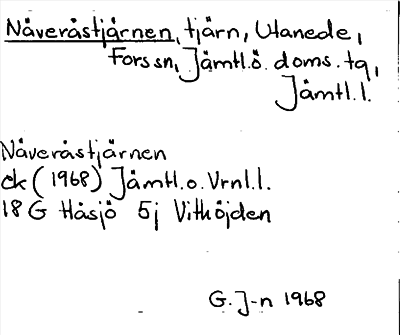 Nåveråstjärnen, tjärn, Utanede,
Fors sn, Jämtl.ö. doms. tg,
Jämtl.l.
Nåveråstjärnen
ek (1968) Jämtl.o. Vrnl.l.
18 G Håsjö 5j Vithöjden
G. J-n 1968